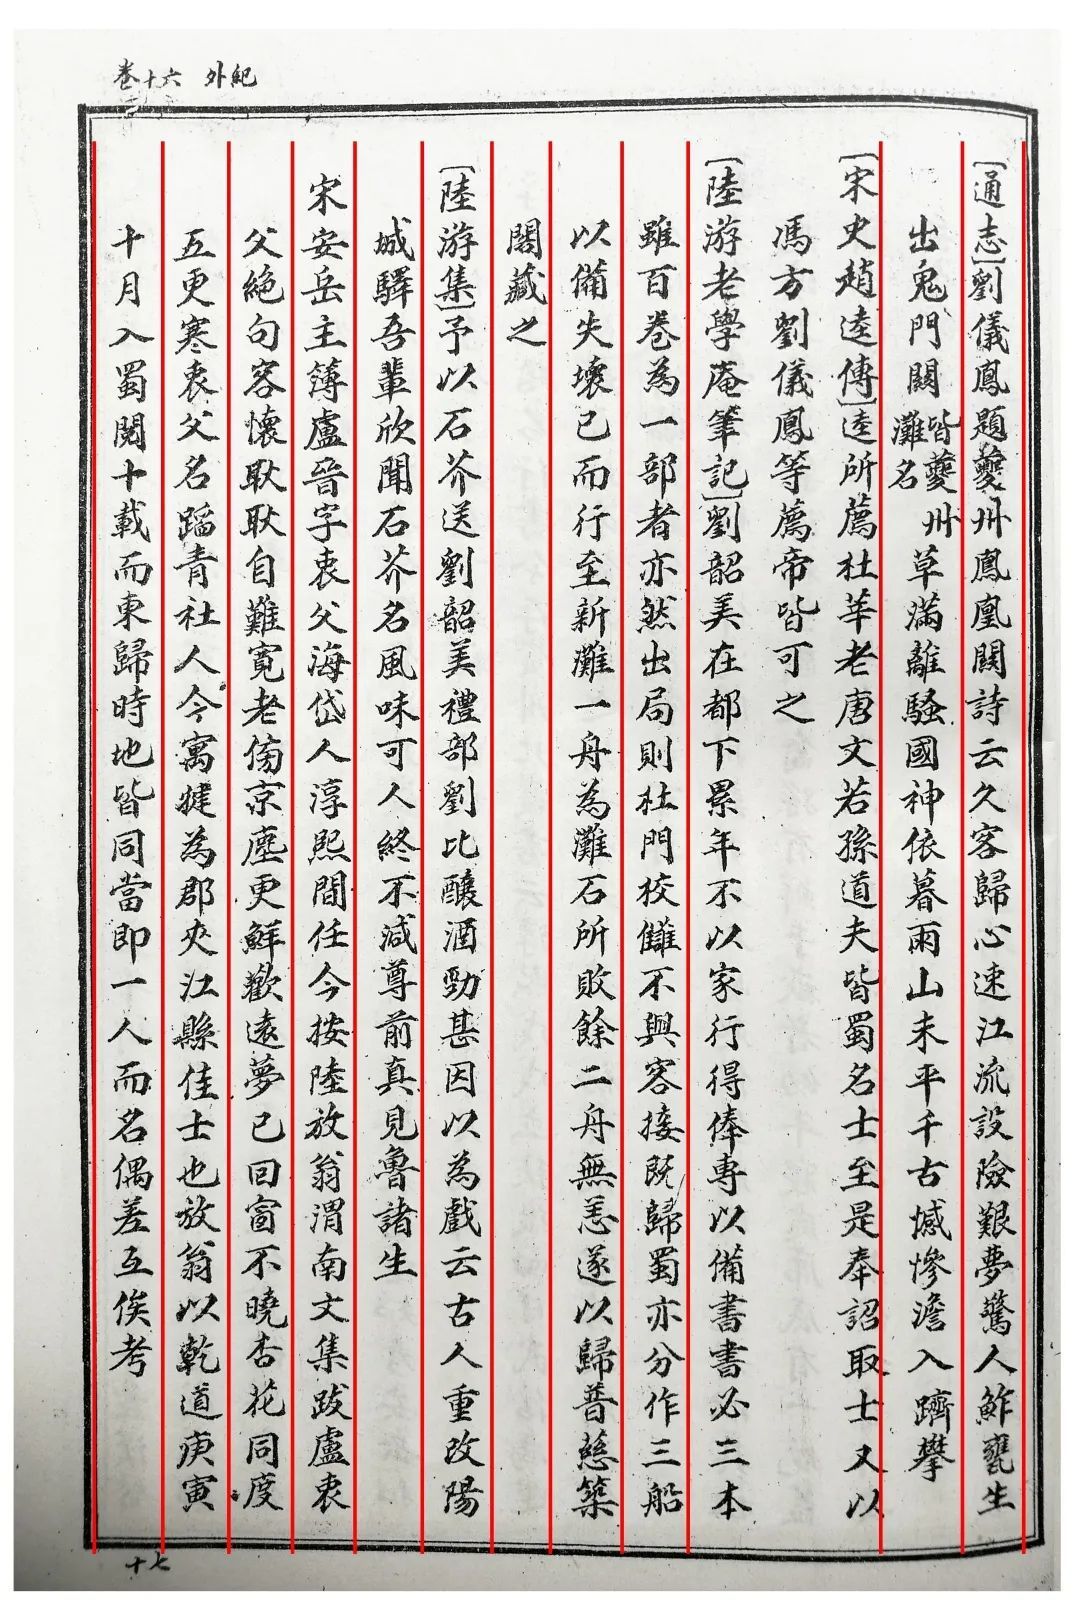 卷十六 外紀
[通志]劉儀鳳題夔州鳳凰關詩云久客歸心速江流設險艱夢驚人鮓甕生
出鬼門關皆夔州灘名草滿離騷國神依暮雨山未平千古憾慘澹入躋攀
[宋史趙逵傳]逵所薦杜莘老唐文若孫道夫皆蜀名士至是奉詔取士又以
馮方劉儀鳳等薦帝皆可之
[陸游老學庵筆記]劉韶美在都下累年不以家行得俸專以備書書必三本
雖百卷為一部者亦然出局則杜門校讎不與客接既歸蜀亦分作三船
以備失壞已而行至新灘一舟為灘石所敗餘二舟無恙遂以歸普慈築
閣藏之
[陸游集]予以石芥送劉韶美禮部劉比釀酒勁甚因以為戲云古人重改陽
城驛吾輩欣聞石芥名風味可人終不減尊前真見魯諸生
宋安岳主簿盧晉字衷父海岱人淳熙間任今按陸放翁渭南文集跋盧衷
父絕句客懷耿耿自難寬老傍京塵更鮮歡遠夢已回窗不曉杏花同度
五更寒衷父名蹈青社人今寓犍為郡夾江縣佳士也放翁以乾道庚寅
十月入蜀閱十載而東歸時地皆同當即一人而名偶差互俟考
十七